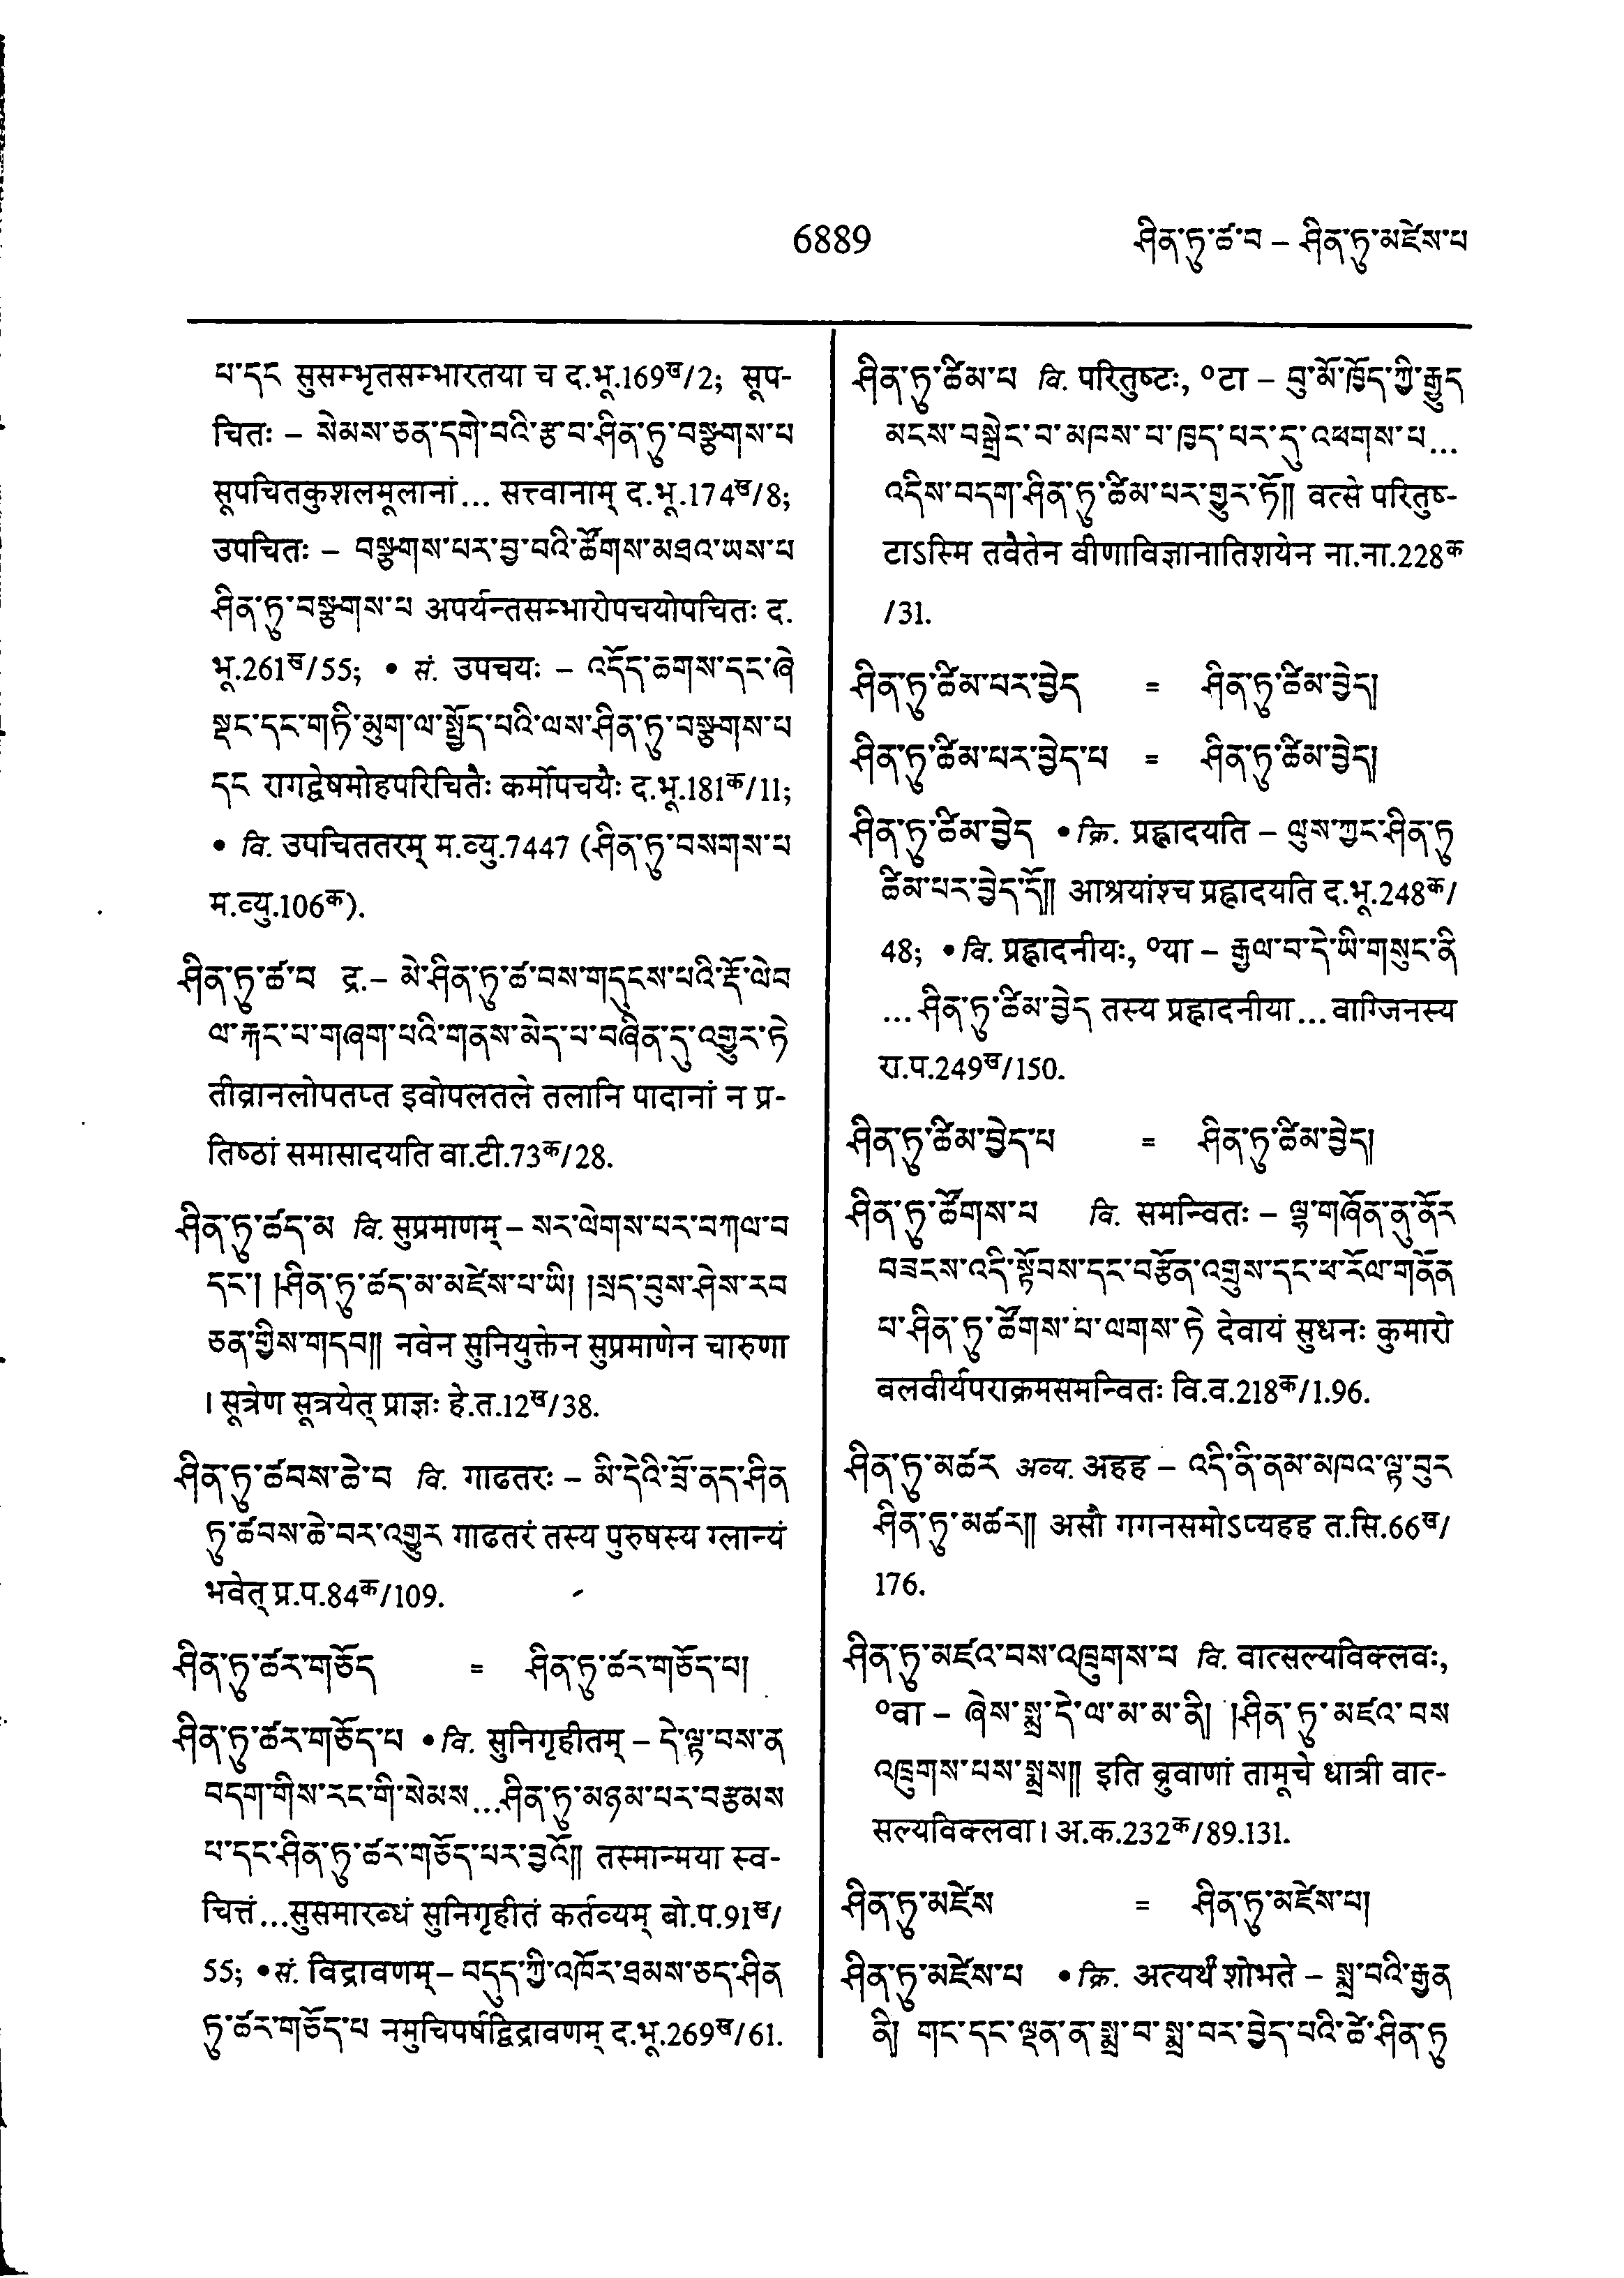 6889
ཤིན་ཏུ་ཚ་བ – ཤིན་ཏུ་མཛེས་པ
པ་དང सुसम्भृतसम्भारतया च द.भू.169ख/2; सूप-
चितः – སེམས་ཅན་དགེ་བའི་རྩ་བ་ཤིན་ཏུ་བསྩགས་པ
सूपचितकुशलमूलानां... सत्त्वानाम् द.भू.174ख/8;
उपचितः – བསྩགས་པར་བྱ་བའི་ཚོགས་མཐའ་ཡས་པ
ཤིན་ཏུ་བསྩགས་པ अपर्यन्तसम्भारोपचयोपचितः द.
भू.261ख/55; • सं. उपचयः – འདོད་ཆགས་དང་ཞེ
སྡང་དང་གཏི་མུག་ལ་སྤྱོད་པའི་ལས་ཤིན་ཏུ་བསྩགས་པ
དང रागद्वेषमोहपरिचितैः कर्मोपचयैः द.भू.181क/11;
• वि. उपचिततरम् म.व्यु.7447 (ཤིན་ཏུ་བསགས་པ
म.व्यु.106क).
ཤིན་ཏུ་ཚ་བ द्र.– མེ་ཤིན་ཏུ་ཚ་བས་གདུངས་པའི་རྡོ་ལེབ
ལ་རྐང་པ་གཞག་པའི་གནས་མེད་པ་བཞིན་དུ་འགྱུར་ཏེ
तीव्रानलोपतप्त इवोपलतले तलानि पादानां न प्र-
तिष्ठां समासादयति वा.टी.73क/28.
ཤིན་ཏུ་ཚད་མ वि. सुप्रमाणम् – སར་ལེགས་པར་བཀལ་བ
དང༌། །ཤིན་ཏུ་ཚད་མ་མཛེས་པ་ཡི། །སྲད་བུས་ཤེས་རབ
ཅན་གྱིས་གདབ།། नवेन सुनियुक्तेन सुप्रमाणेन चारुणा
। सूत्रेण सूत्रयेत् प्राज्ञः हे.त.12ख/38.
ཤིན་ཏུ་ཚབས་ཆེ་བ वि. गाढतरः – མི་དེའི་བྲོ་ནད་ཤིན
ཏུ་ཚབས་ཆེ་བར་འགྱུར गाढतरं तस्य पुरुषस्य ग्लान्यं
भवेत् प्र.प.84क/109.
ཤིན་ཏུ་ཚར་གཅོད = ཤིན་ཏུ་ཚར་གཅོད་པ།
ཤིན་ཏུ་ཚར་གཅོད་པ • वि. सुनिगृहीतम् – དེ་ལྟ་བས་ན
བདག་གིས་རང་གི་སེམས...ཤིན་ཏུ་མཉམ་པར་བརྩམས
པ་དང་ཤིན་ཏུ་ཚར་གཅོད་པར་བྱའོ།། तस्मान्मया स्व-
चित्तं...सुसमारब्धं सुनिगृहीतं कर्तव्यम् बो.प.91ख/
55; • सं. विद्रावणम् – བདུད་ཀྱི་འཁོར་ཐམས་ཅད་ཤིན
ཏུ་ཚར་གཅོད་པ नमुचिपर्षद्विद्रावणम् द.भू.269ख/61.
ཤིན་ཏུ་ཚིམ་པ वि. परितुष्टः, ०टा – བུ་མོ་ཁྱོད་ཀྱི་རྒྱུད
མངས་བསྒྲེང་བ་མཁས་པ་ཁྱད་པར་དུ་འཕགས་པ...
འདིས་བདག་ཤིན་ཏུ་ཚིམ་པར་གྱུར་ཏོ།། वत्से परितुष-
टाऽस्मि तवैतेन वीणाविज्ञानातिशयेन ना.ना.228क
/31.
ཤིན་ཏུ་ཚིམ་པར་བྱེད = ཤིན་ཏུ་ཚིམ་བྱེད།
ཤིན་ཏུ་ཚིམ་པར་བྱེད་པ = ཤིན་ཏུ་ཚིམ་བྱེད།
ཤིན་ཏུ་ཚིམ་བྱེད • क्रि. प्रह्लादयति – ལུས་ཀྱང་ཤིན་ཏུ
ཚིམ་པར་བྱེད་དོ།། आश्रयांश्च प्रह्लादयति द.भू.248क/
48; • वि. प्रह्लादनीयः, ०या – རྒྱལ་བ་དེ་ཡི་གསུང་ནི
...ཤིན་ཏུ་ཚིམ་བྱེད तस्य प्रह्लादनीया... वाग्जिनस्य
रा.प.249ख/150.
ཤིན་ཏུ་ཚིམ་བྱེད་པ = ཤིན་ཏུ་ཚིམ་བྱེད།
ཤིན་ཏུ་ཚོགས་པ वि. समन्वितः – ལྷ་གཞོན་ནུ་ནོར
བཟངས་འདི་སྟོབས་དང་བརྩོན་འགྲུས་དང་ཕ་རོལ་གནོན
པ་ཤིན་ཏུ་ཚོགས་པ་ལགས་ཏེ देवायं सुधनः कुमारो
बलवीर्यपराक्रमसमन्वितः वि.व.218क/1.96.
ཤིན་ཏུ་མཚར अव्य. अहह – འདི་ནི་ནམ་མཁའ་ལྟ་བུར
ཤིན་ཏུ་མཚར།། असौ गगनसमोऽप्यहह त.सि.66ख/
176.
ཤིན་ཏུ་མཛའ་བས་འཁྲུགས་པ वि. वात्सल्यविक्लवः,
०वा – ཞེས་སྨྲ་དེ་ལ་མ་མ་ནི། །ཤིན་ཏུ་མཛའ་བས
འཁྲུགས་པས་སྨྲས།། इति ब्रुवाणां तामूचे धात्री वात-
सल्यविक्लवा। अ.क.232क/89.131.
ཤིན་ཏུ་མཛེས = ཤིན་ཏུ་མཛེས་པ།
ཤིན་ཏུ་མཛེས་པ • क्रि. अत्यर्थं शोभते – སྨྲ་བའི་རྒྱན
ནི། གང་དང་ལྡན་ན་སྨྲ་བ་སྨྲ་བར་བྱེད་པའི་ཚེ་ཤིན་ཏུ